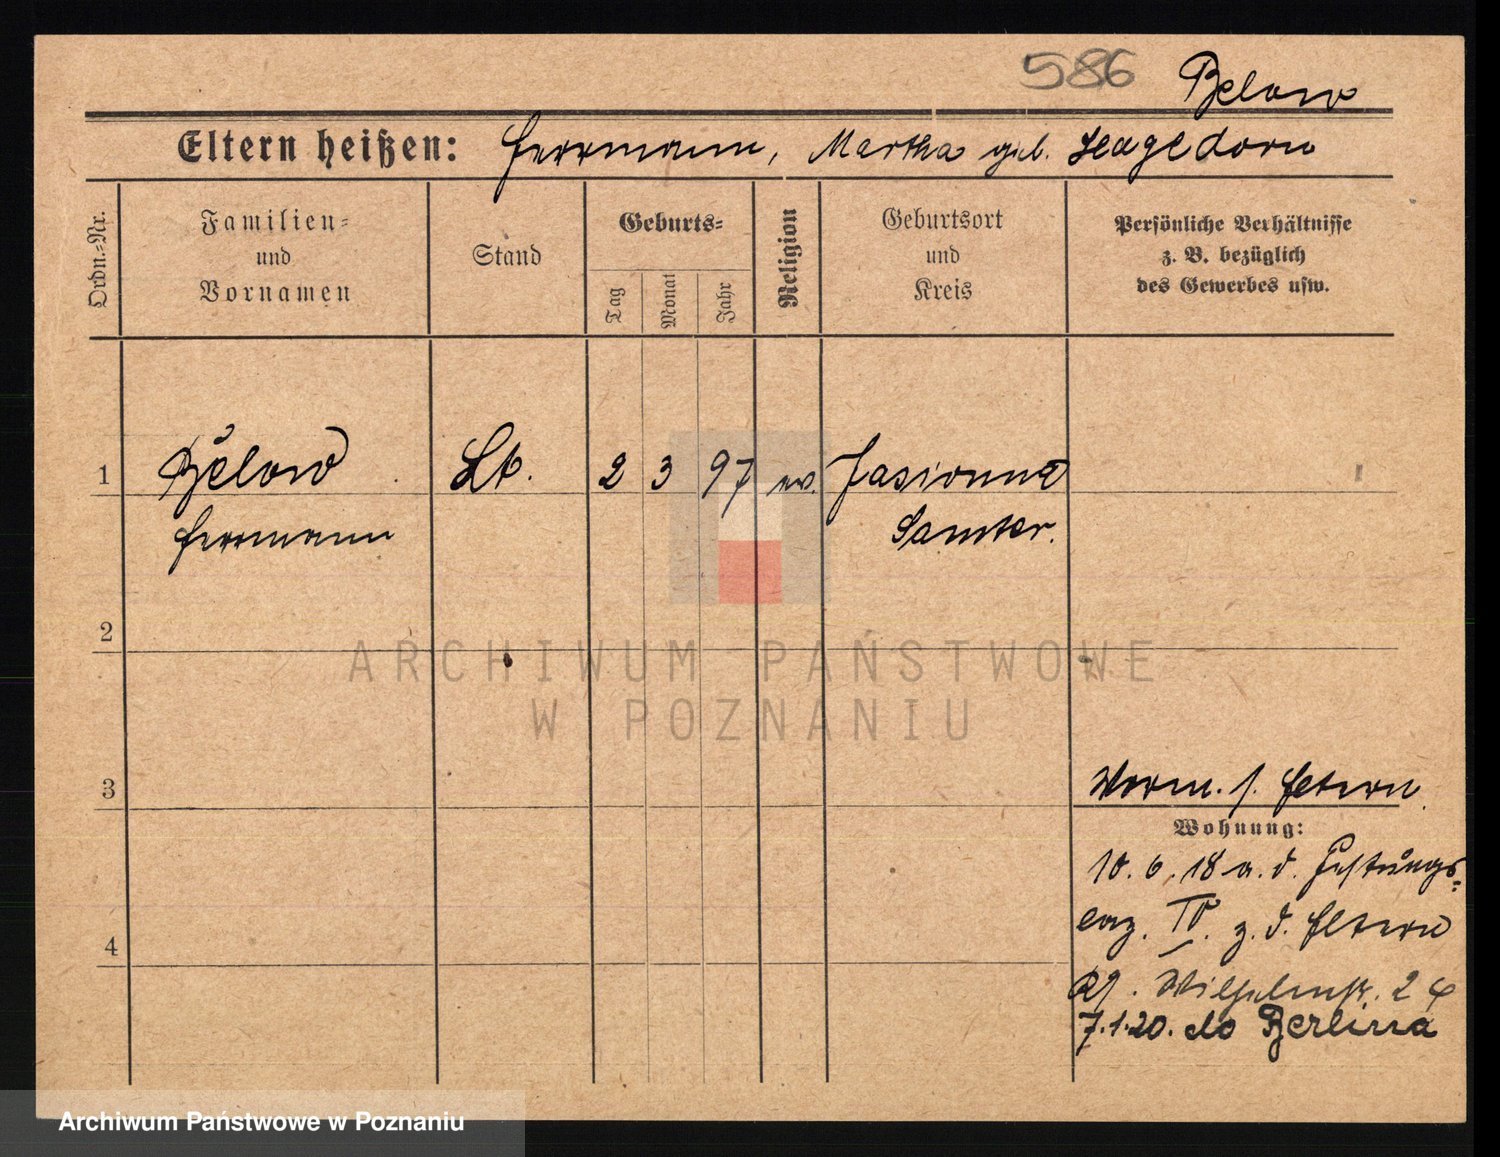 586 Below
Eltern heißen: Herrmann, Martha geb. Hagedorn
Ordn.=Nr.
Familien=
und
Vornamen
Stand
Geburts=
Tag
Monat
Jahr
Religion
Geburtsort
und
Kreis
Persönliche Verhältnisse
z. B. bezüglich
des Gewerbes usw.
1 Below Lt. 2 3 97 ev. Jasionna
Herrmann Samter.
2
ARCHIWUM PAŃSTWOWE
W POZNANIU
3
Vorm. s. Eltern
Wohnung:
10. 6. 18 a. d. Festungs=
IV. z. d. Eltern
Wilhelmstr. 24
7.1.20. do Berlina
4
Archiwum Państwowe w Poznaniu